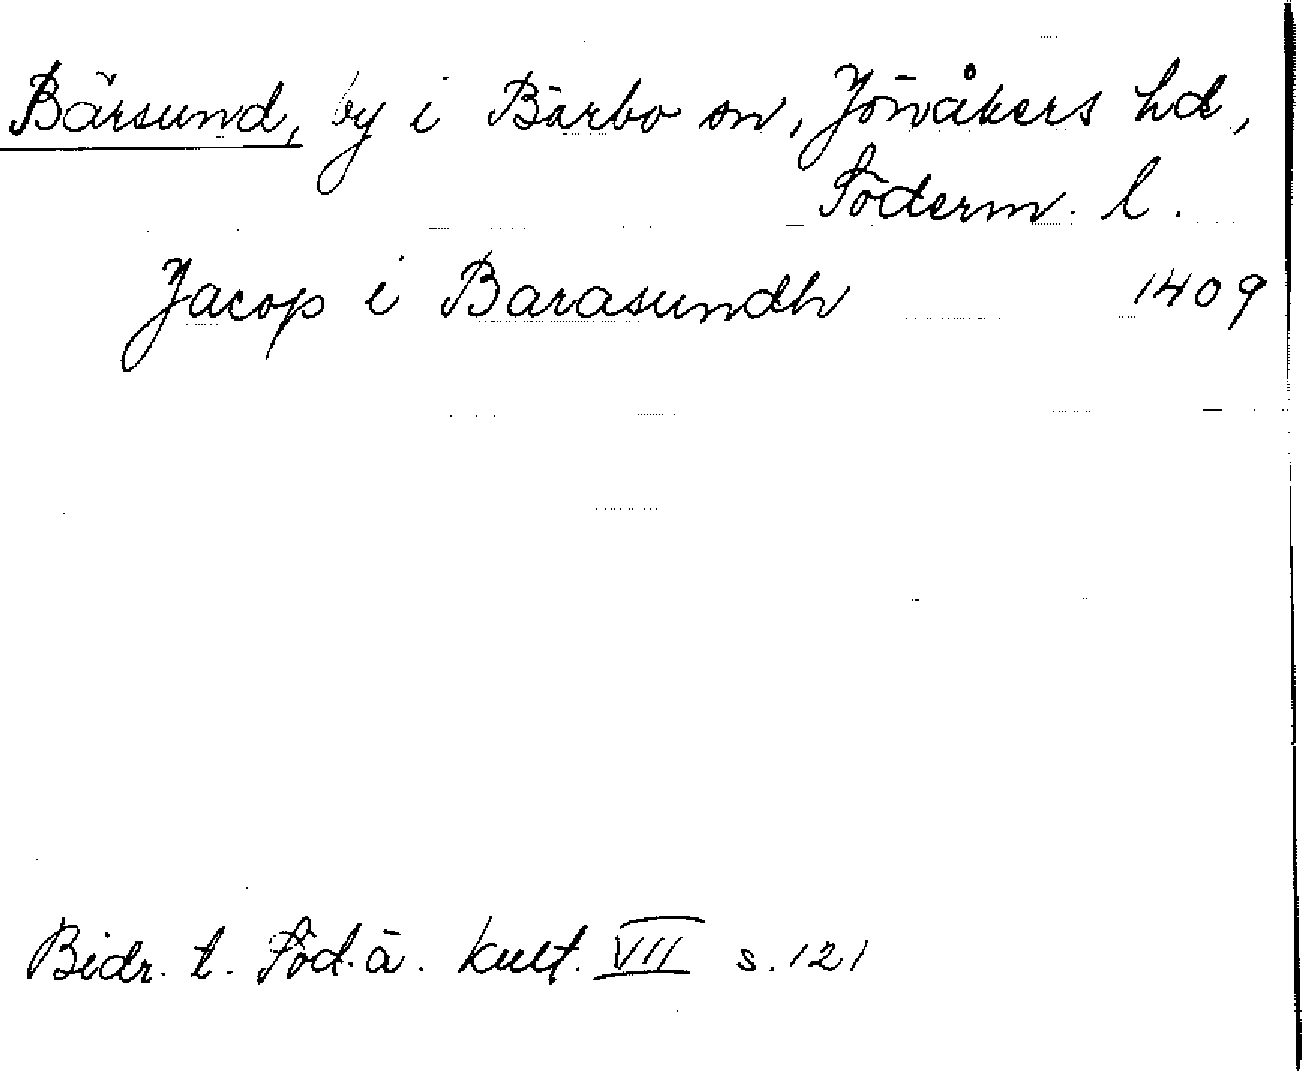 Bärsund, by i Bärbo sn, Jönåkers hd,
Söderm. l.
Jacop i Barasundh 1409
Bidr. t. Söd. ä. kult. VII s. 121